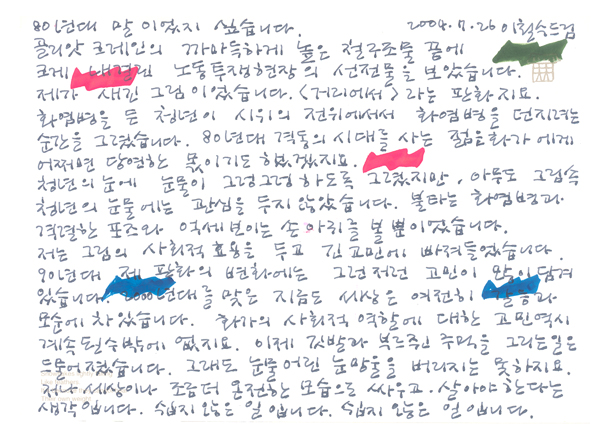 80년대 말 이었지 싶습니다. 2004.7.26 이철수드림
골리앗 크레인의 까마득하게 높은 철구조물 품에
크게 노동투쟁현장의 선전물을 보았습니다.
제가 새긴 그림이었습니다. <거리에서>라는 판화지요.
화염병을 든 청년이 시위의 전위에서서 화염병을 던지려는
순간을 그렸습니다. 80년대 격동의 시대를 사는 젊은화가에게
어쩌면 당연한 몫이기도 하였겠지요.
청년의 눈에 눈물이 그렁그렁하도록 그렸지만, 아무도 그림속
청년의 눈물에는 관심을 두지 않았습니다. 불타는 화염병과
격렬한 포즈와 억세보이는 손아귀를 볼 뿐이었습니다.
저는 그림의 사회적 효용을 두고 긴 고민에 빠져들었습니다.
90년대 제 판화의 변화에는 그런저런 고민이 담겨
있습니다. 2000년대를 맞은 지금도 세상은 여전히
모순에 차있습니다. 화가의 사회적 역할에 대한 고민역시
계속될수밖에 없지요. 이제 깃발과 부르쥔 주먹을 그리는일은
드물어졌습니다. 그래도 눈물어린 눈망울을 버리지는 못하지요.
저나 세상이나 조금더 온전한 모습으로 싸우고, 살아야한다는
생각입니다. 쉽지않은 일입니다. 쉽지않은 일입니다.